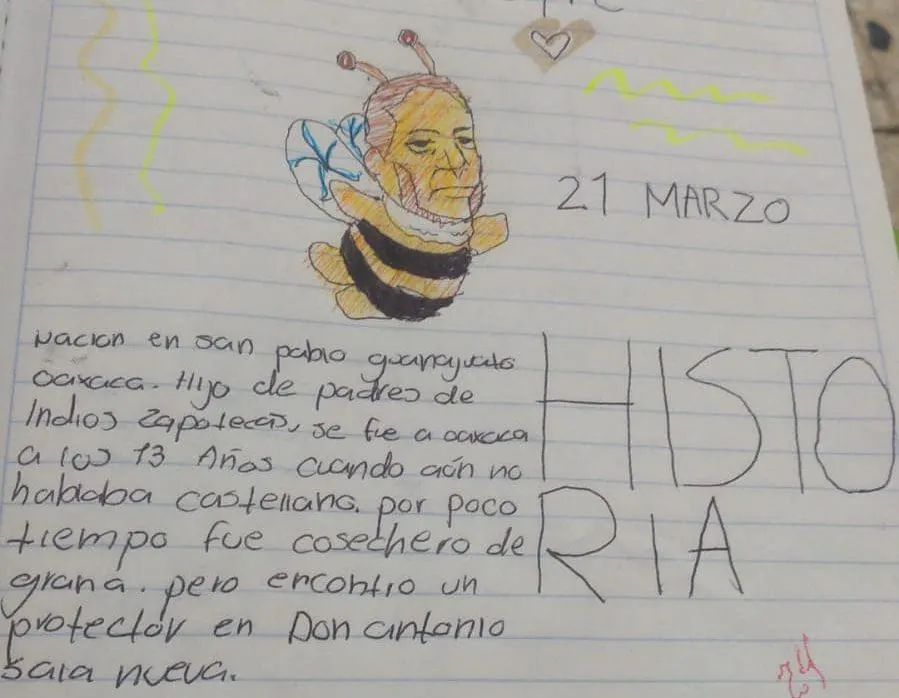 21 MARZO
HISTO
RIA
Nacion en san pablo guanajuato
oaxaca. Hijo de padres de
Indios Zapotecas, se fue a oaxaca
a los 13 Años cuando aún no
hablaba castellano, por poco
tiempo fue cosechero de
grana. pero encontro un
protector en Don antonio
sala nueva.